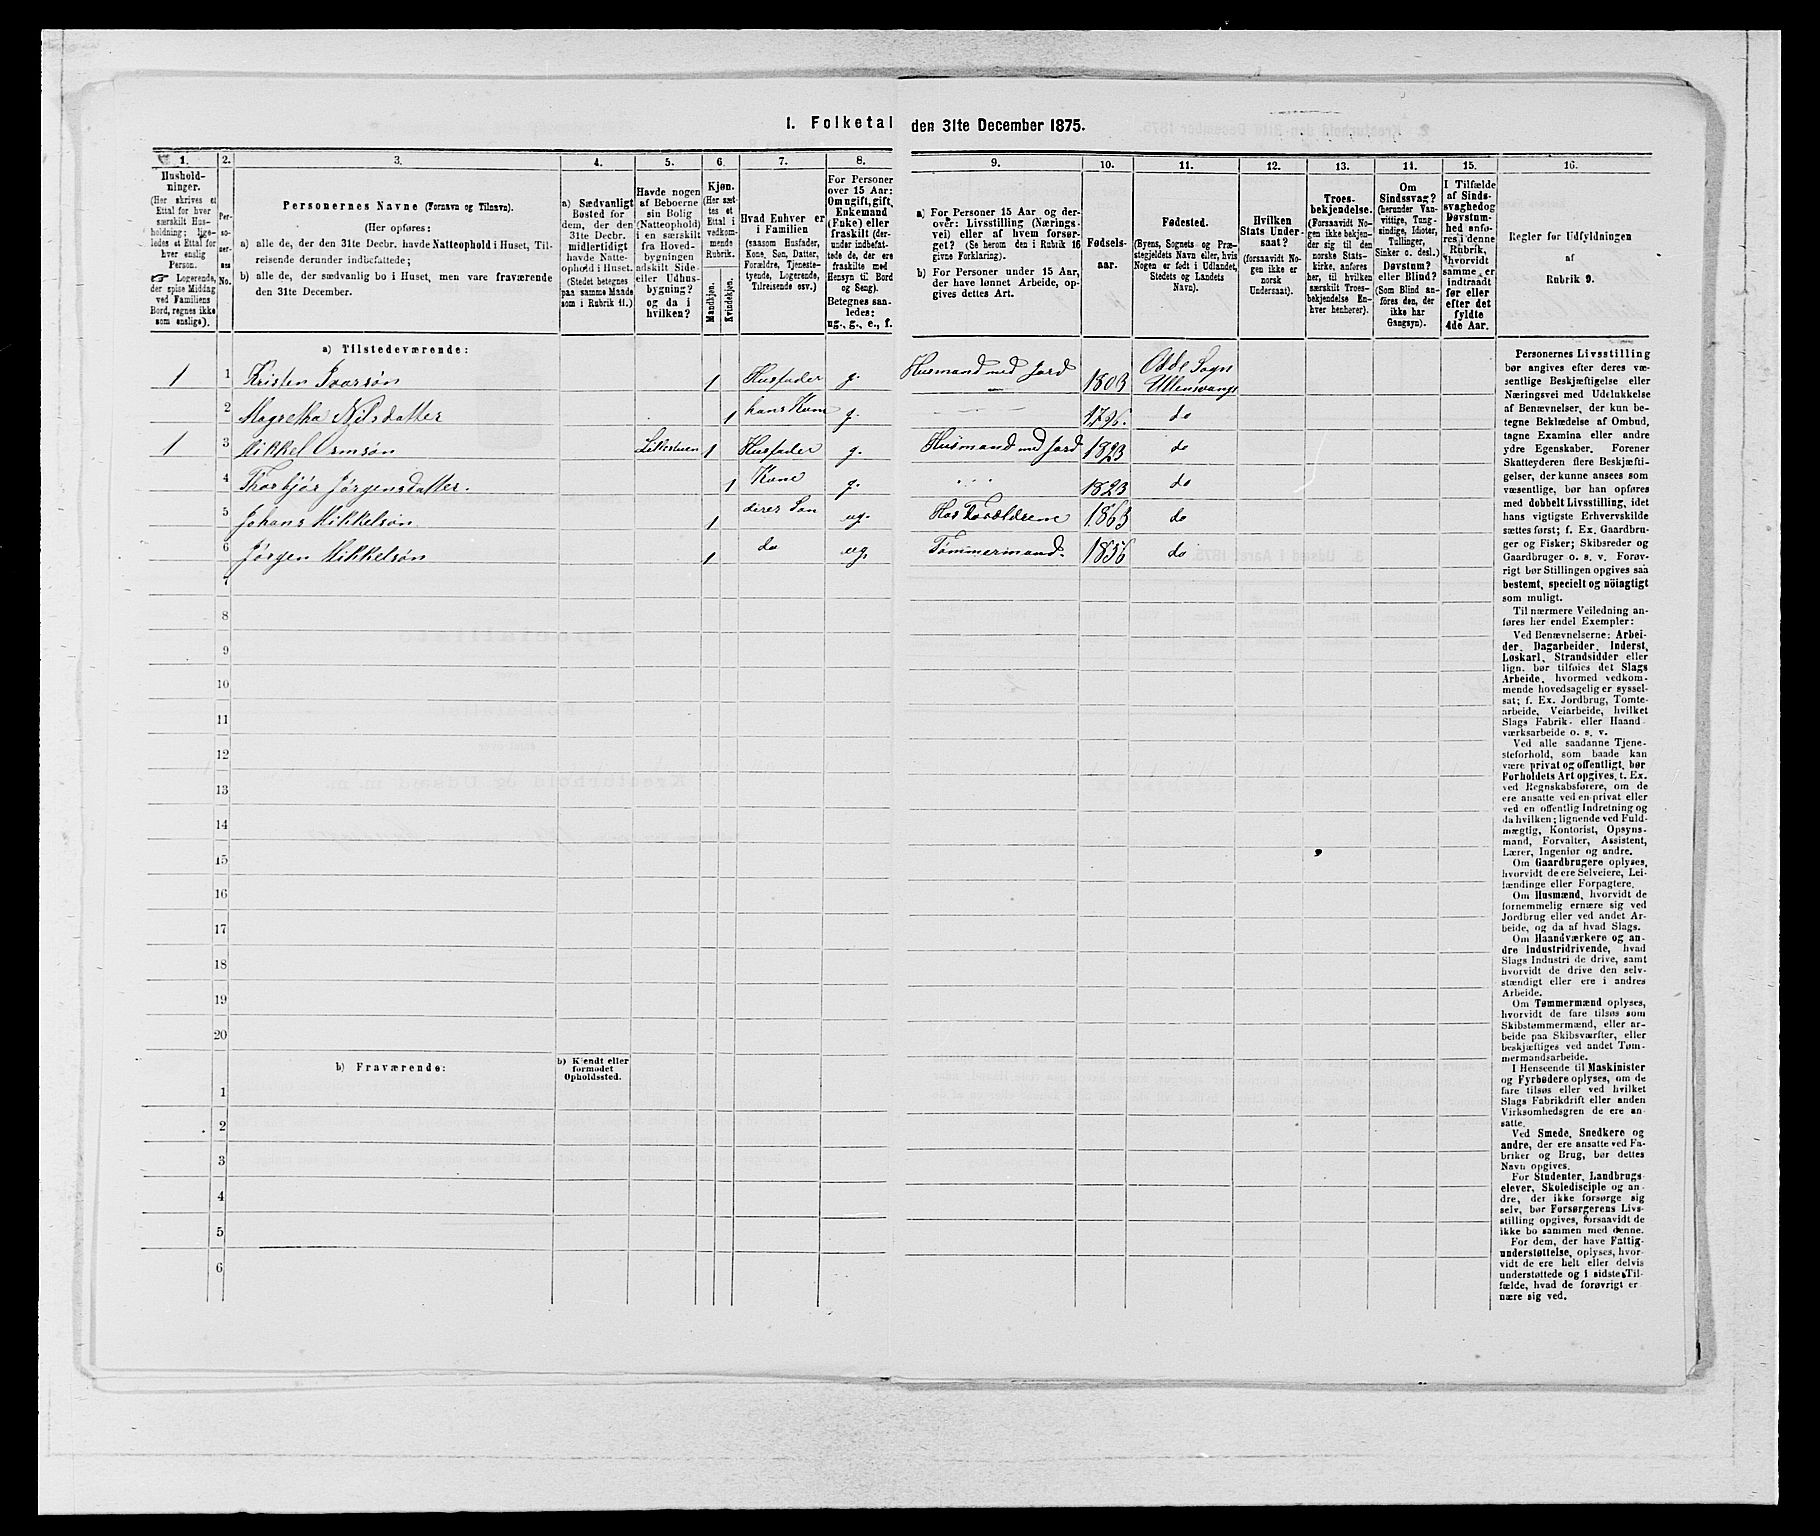 I. Folketal den 31te December 1875.
1. 2. 3. 4. 5. 6. 7. 8. 9. 10. 11. 12. 13. 14. 15. 16.
Husholdninger.
(Her skrives et
Ettal for hver
særskilt Hus-
holdning; lige-
ledes et Ettal for
hver enslig
Person.
☞ Logerende,
der spise Middag
ved Familiens
Bord, regnes ikke
som enslige).
Per-
so-
ner-
nes
No.
Personernes Navne (Fornavn og Tilnavn).
(Her opføres:
a) alle de, der den 31te Decbr. havde Natteophold i Huset, Til-
reisende derunder indbefattede;
b) alle de, der sædvanlig bo i Huset, men vare fraværende
den 31te December.
a) Sædvanligt
Bosted for
dem, der den
31te Decbr.
midlertidigt
havde Natte-
ophold i Huset.
(Stedet betegnes
paa samme Maade
som i Rubrik 11.)
Havde nogen
af Beboerne
sin Bolig
(Natteophold)
i en særskilt
fra Hoved-
bygningen
adskilt Side-
eller Udhus-
bygning?
og da i
hvilken?
Kjøn.
(Her sæt-
tes et
Ettal i
vedkom-
mende
Rubrik.
Mandkjøn.
Kvindekjøn.
Hvad Enhver er
i Familien
(saasom Husfader,
Kone, Søn, Datter,
Forældre, Tjeneste-
tyende, Logerende,
Tilreisende osv.)
For Personer
over 15 Aar:
Om ugift, gift,
Enkemand
(Enke) eller
fraskilt (der-
under indbefat-
tede de, der ere
fraskilte med
Hensyn til Bord
og Seng).
Betegnes saa-
ledes:
ug., g., e., f.
a) For Personer 15 Aar og der-
over: Livsstilling (Nærings-
vei) eller af hvem forsør-
get? (Se herom den i Rubrik 16
givne Forklaring).
b) For Personer under 15 Aar,
der have lønnet Arbeide, op-
gives dettes Art.
Fødsels-
aar.
Fødested.
(Byens, Sognets og Præ-
stegjeldets Navn eller, hvis
Nogen er født i Udlandet,
Stedets og Landets
Navn).
Hvilken
Stats Under-
saat?
(forsaavidt No-
gen ikke er
norsk
Undersaat).
Troes-
bekjendelse.
(Forsaavidt No-
gen ikke bekjen-
der sig til den
norske Stats-
kirke, anføres
her, til hvilken
særskilt Troes-
bekjendelse En-
hver henhører).
Om
Sindssvag?
(herunder Van-
vittige, Tung-
sindige, Idioter,
Tullinger,
Sinker o. desl.)
Døvstum?
eller Blind?
(Som Blind an-
føres den, der
ikke har
Gangsyn).
I Tilfælde
af Sinds-
svaghed og
Døvstum-
hed anfø-
res i denne
Rubrik,
hvorvidt
samme er
indtraadt
før eller
efter det
fyldte
4de Aar.
Regler for Udfyldningen
af
Rubrik 9.
a) Tilstedeværende:
1 1 Kristen Ivarsøn 1 Husfader g. Husmand med Jord 1803 Odde Sogn Ullensvangs
2 Magretha Nilsdatter 1 hans Kone g. 1796. do
1 3 Mikkel Ormsøn 1 Husfader g. Husmand med Jord 1823 do
4 Thorbjør Jørgensdatter. 1 Kone g. 1823 do
5 Johans Mikkelsøn 1 deres Søn ug. Hos Forældrene 1863 do
6 Jørgen Mikkelsøn 1 do ug. Tømmermand. 1856 do
7
8
9
10
11
12
13
14
15
16
17
18
19
20
b) Fraværende:
b) Kjendt eller
formodet
Opholdssted.
1
2
3
4
5
6
Personernes Livsstilling
bør angives efter deres væ-
sentlige Beskjæftigelse eller
Næringsvei med Udelukkelse
af Benævnelser, der kun be-
tegne Beklædelse af Ombud,
tagne Examina eller andre
ydre Egenskaber. Forener
Skatteyderen flere Beskjæfti-
gelser, der kunne ansees som
væsentlige, bør han opføres
med dobbelt Livsstilling, idet
hans vigtigste Erhvervskilde
sættes først; f. Ex. Gaardbru-
ger og Fisker; Skibsreder og
Gaardbruger o. s. v. Forøv-
rigt bør Stillingen opgives saa
bestemt, specielt og nöiagtigt
som muligt.
Til nærmere Veiledning an-
føres her endel Exempler:
Ved Benævnelserne: Arbei-
der, Dagarbeider, Inderst,
Løskarl, Strandsidder eller
lign. bør tilføies det Slags
Arbeide, hvormed vedkom-
mende hovedsagelig er syssel-
sat; f. Ex. Jordbrug, Tomte-
arbeide, Veiarbeide, hvilket
Slags Fabrik- eller Haand
værksarbeide o. s. v.
Ved alle saadanne Tjene-
steforhold, som baade kan
være privat og offentligt, bør
Forholdets Art opgives, t. Ex.
ved Regnskabsførere, om de
ere ansatte ved en privat eller
ved en offentlig Indretning og
da hvilken; lignende ved Fuld-
mægtig, Kontorist, Opsyns-
mand, Forvalter, Assistent,
Lærer, Ingeniør og andre.
Om Gaardbrugere oplyses,
hvorvidt de ere Selveiere, Lei-
lændinge eller Forpagtere.
Om Husmænd, hvorvidt de
fornemmelig ernære sig ved
Jordbrug eller ved andet Ar-
beide, og da af hvad Slags.
Om Haandværkere og an-
dre Industridrivende, hvad
Slags Industri de drive, samt
hvorvidt de drive den selv-
stændigt eller ere i andres
Arbeide.
Om Tømmermænd oplyses,
hvorvidt de fare tilsøs som
Skibstømmermænd, eller ar-
beide paa Skibsværfter, eller
beskjæftiges ved andet Tøm-
mermandsarbeide.
I Henseende til Maskinister
og Fyrbødere oplyses, om de
fare tilsøs eller ved hvilket
Slags Fabrikdrift eller anden
Virksomhedsgren de ere an-
satte.
Ved Smede, Snedkere og
andre, der ere ansatte ved Fa-
briker og Brug, bør dettes
Navn opgives.
For Studenter, Landbrugs-
elever, Skoledisciple og an-
dre, der ikke forsørge sig
selv, bør Forsørgerens Livs-
stilling opgives, forsaavidt de
ikke bo sammen med denne.
For dem, der have Fattig-
understøttelse, oplyses, hvor-
vidt de ere helt eller delvis
understøttede og i sidste Til-
fælde, hvad de forøvrigt er-
nære sig ved.